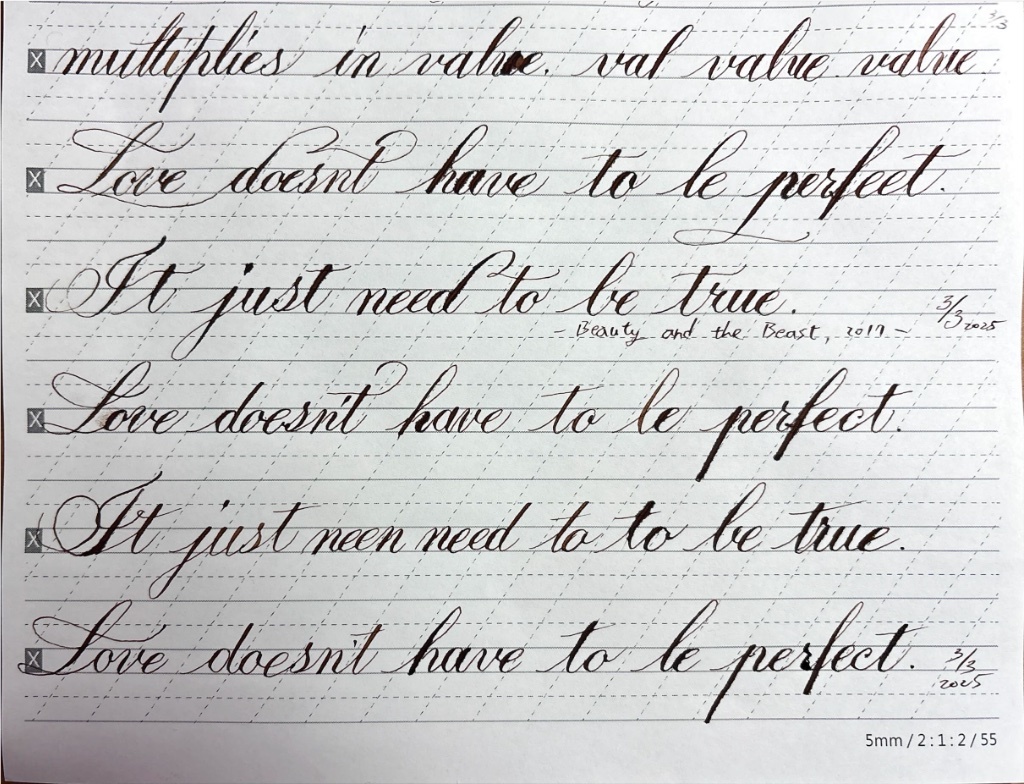 3/3
X multiplies in value. val value value
X Love doesn't have to be perfect.
X It just need to be true. 3/3 2025
- Beauty and the Beast, 2017 -
X Love doesn't have to be perfect.
X It just neen need to to be true.
X Love doesn't have to be perfect. 3/3
2025
5mm / 2:1:2 / 55